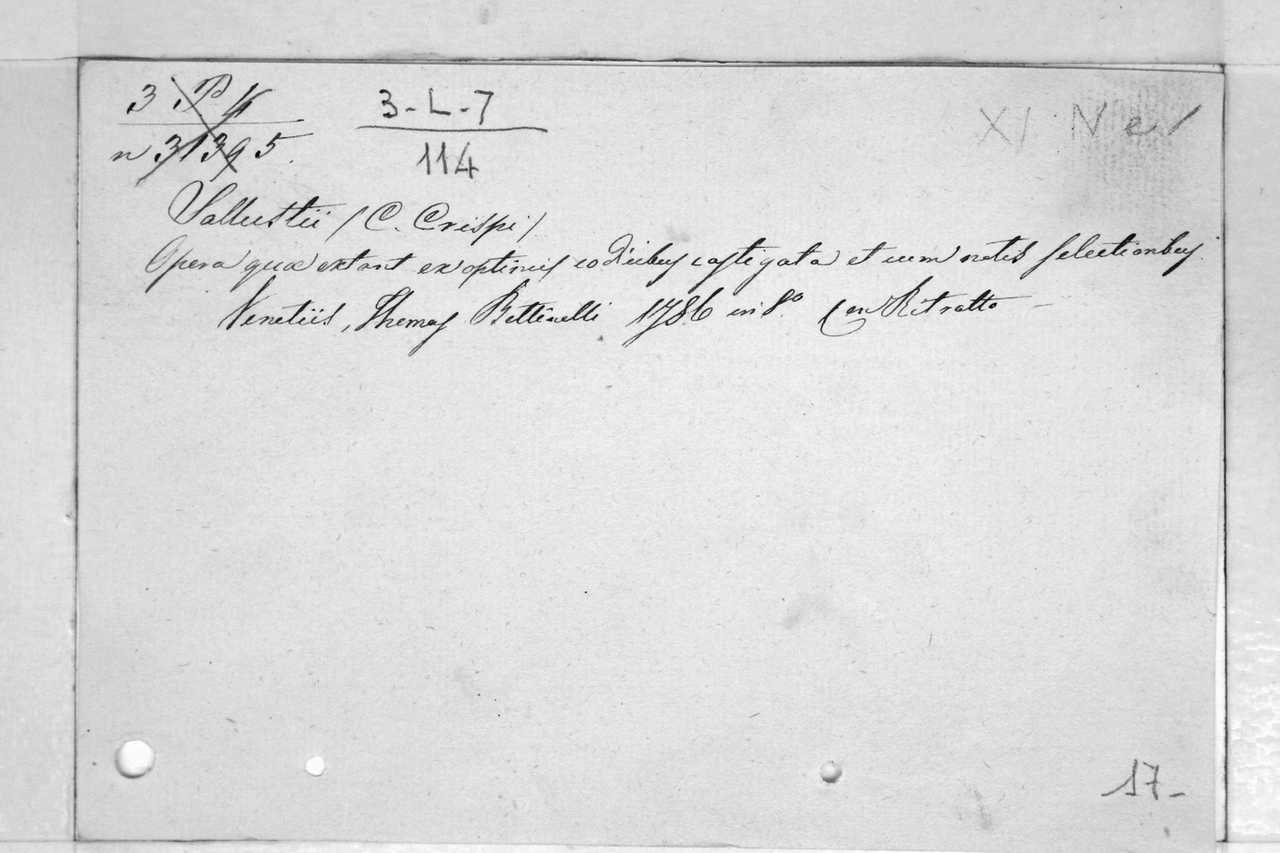 3 P 4
n 31395.
3-L-7
114
XI N e 1
Sallustii (C. Crispi)
Opera quæ extant ex optimis codicibus castigata et cum notis selectionbus.
Venetiis, Thomas Bettinelli 1786 in 8.º Con Ritratto
17-